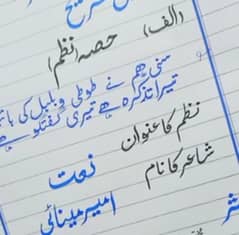 تشریح
(الف) حصہ نظم)
سنی ہم نے طوطی و بلبل کی
تیرا تذکرہ ہے تیری گفتگو ہے
نظم کا عنوان نعت
شاعر کا نام امیر مینائی